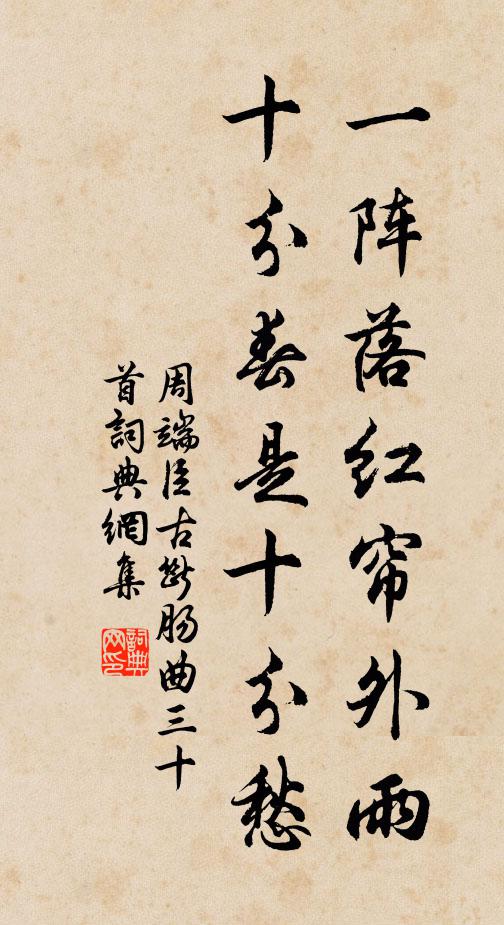 一阵落红帘外雨
十分春是十分愁
周端臣古断肠曲三十
首詞典網集
詞典
网印